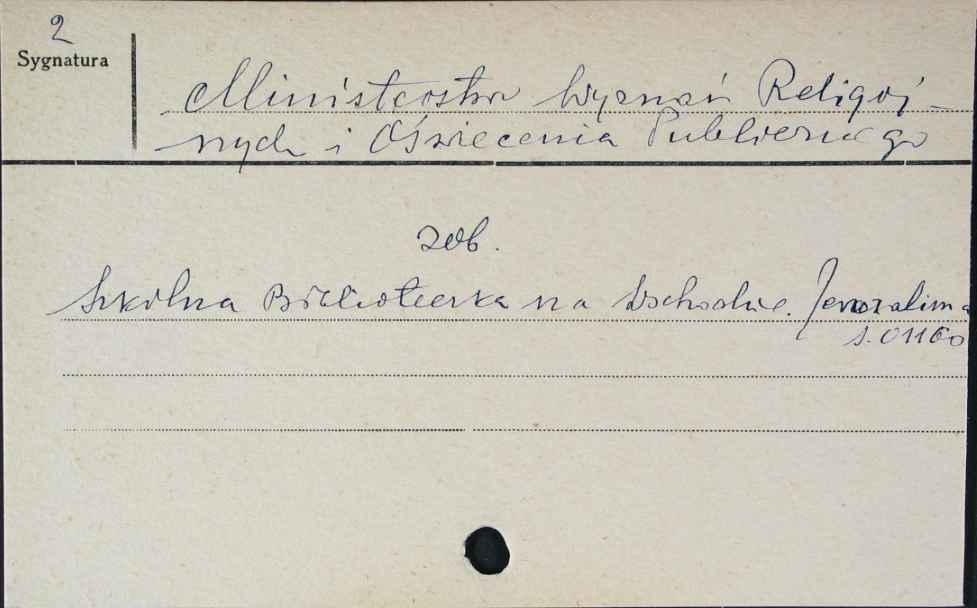 2
Sygnatura
Ministerstwo Wyznań Religij-
nych i Oświecenia Publicznego
zob.
Szkolna Biblioteczka na Wschodzie. Jerozolima
s. 01160